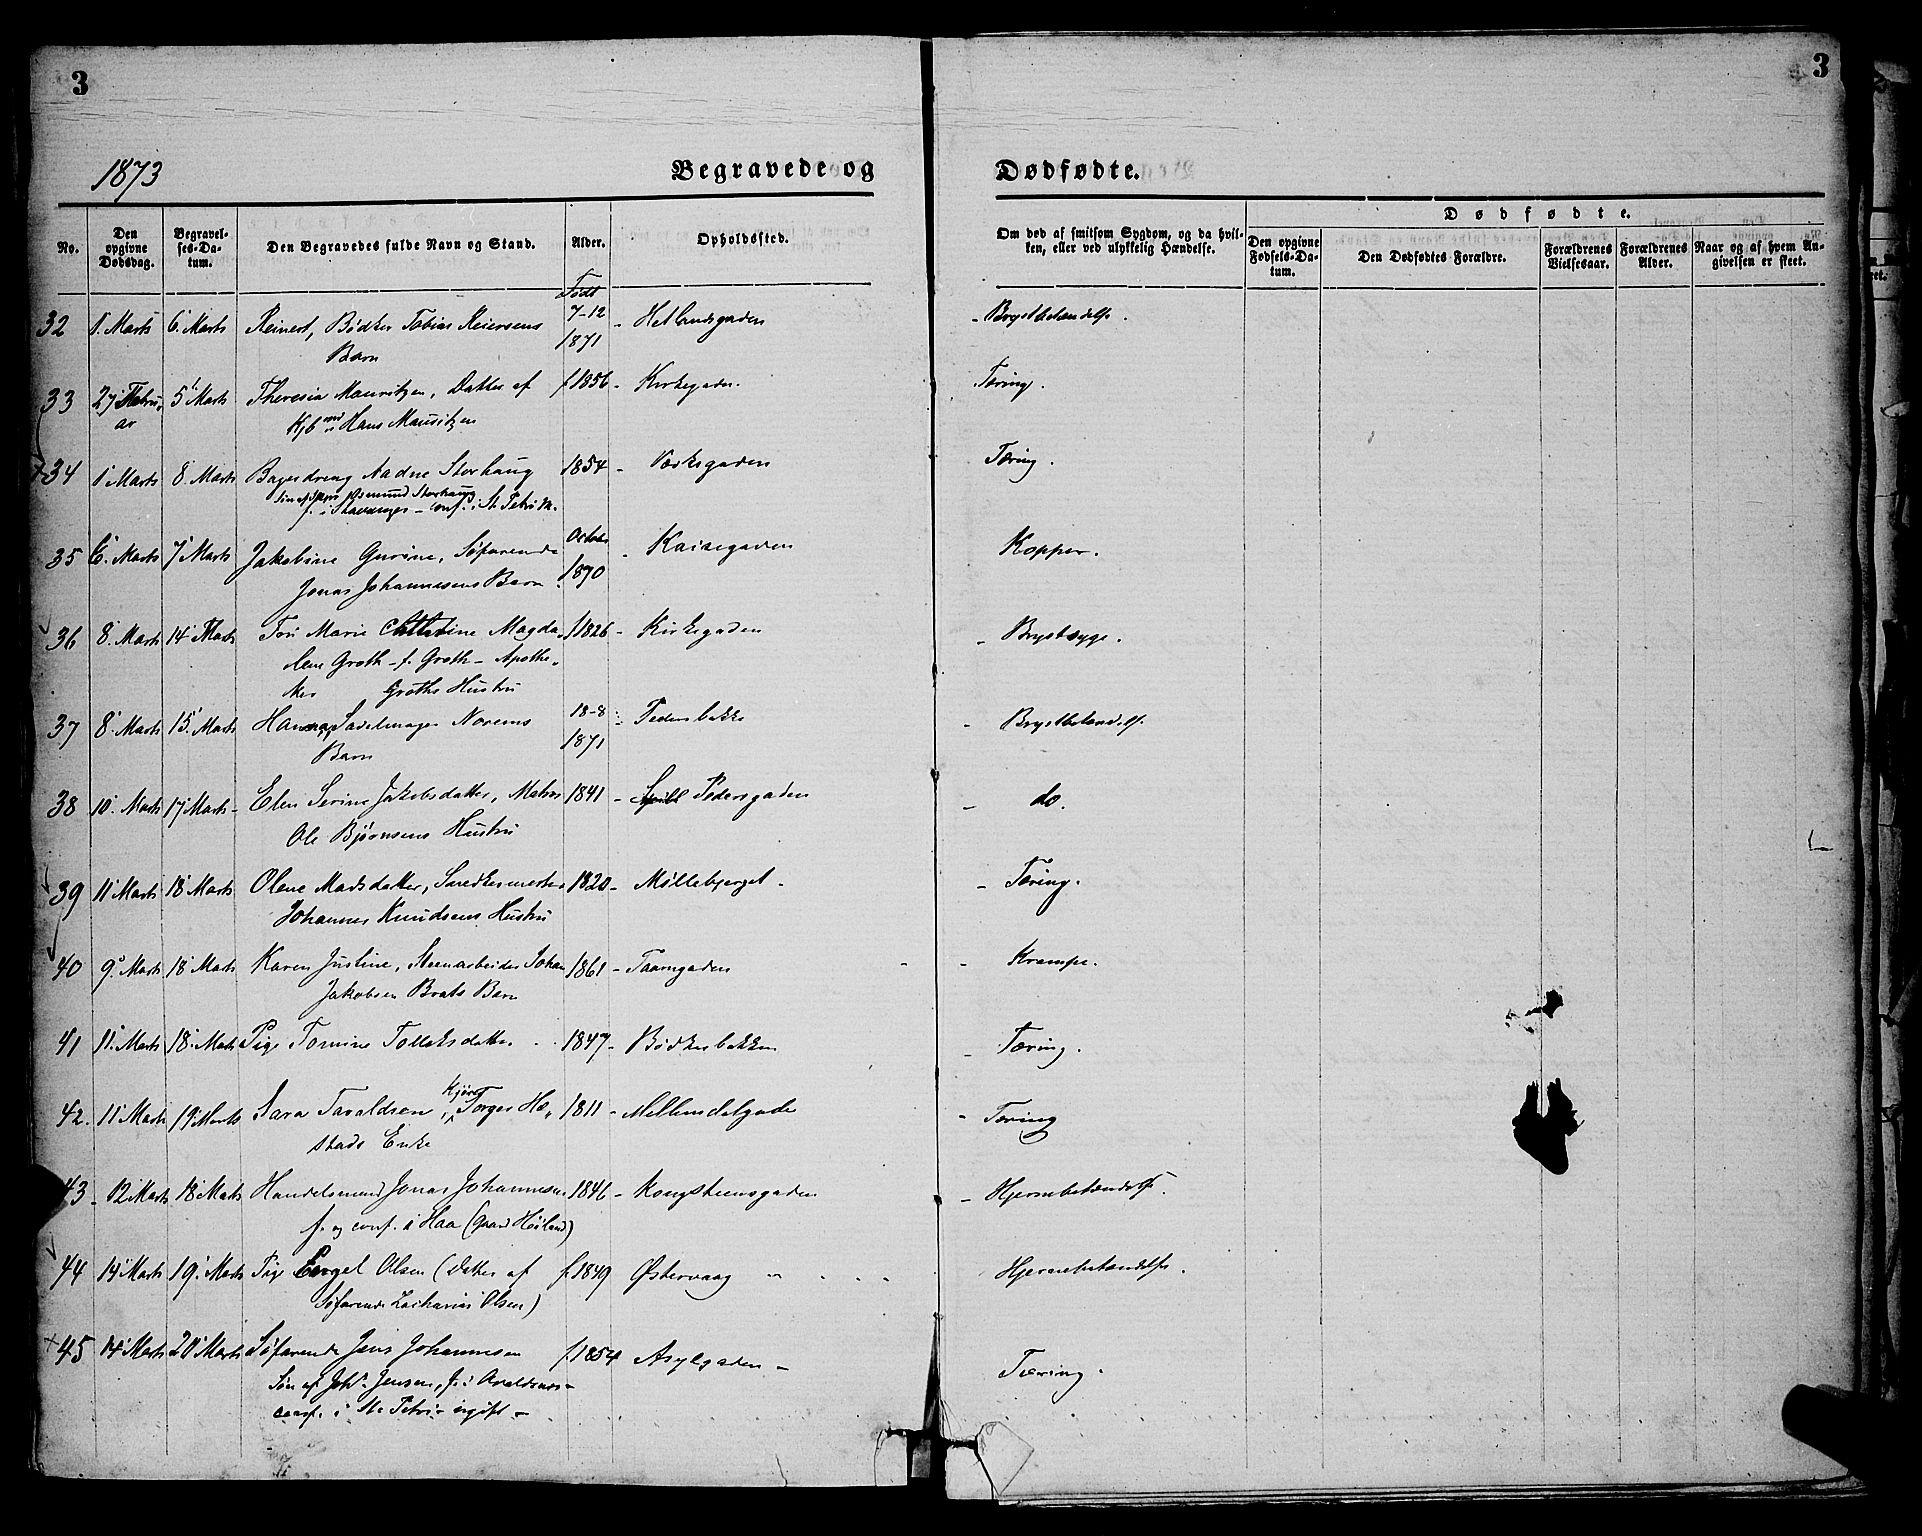 3
3
1873
Begravede og
Dødfødte.
No.
Den opgivne Dødsdag.
Begravelses-Datum.
Den Begravedes fulde Navn og Stand.
Alder.
Opholdssted.
Om død af smitsom Sygdom, og da hvilken, eller ved ulykkelig Hændelse.
Dødfødte.
Den opgivne Fødsels-Datum.
Den Dødfødtes Forældre.
Forældrenes Vielsesaar.
Forældrenes Alder.
Naar og af hvem Angivelsen er skeet.
Født
32 1. Marts 6. Marts Reinert, Bødker Tobias Reiersens 7-12 - Hetlandsgaden - Brystbetændelse.
Barn 1871
33 27 Februar 5 Marts Theresia Mauritzen, Datter af f 1856 - Kirkegaden. Tæring.
Kjbmd Hans Mauritzen
34 1 Marts 8. Marts Bagerdreng Aadne Storhaug 1854 - Værksgaden Tæring.
Søn af Asmund Storhaug
f. i Stavanger - conf. i St. Petri M.
35 6. Marts 7 Marts Jakobine Gurine, Søfarende October - Kaisegaden Kopper.
Jonas Johannesens Barn. 1870
36 8. Marts 14 Marts Fru Marie Cathrine Magda- f 1826 - Kirkegaden - Brystsyge.
lene Groth - f. Groth - Apothe-
ker Groths Hustru
37 8. Marts 15. Marts Hanna, Sadelmager Norems 18-8 - Pedersbakke - Brystbetændelse.
Barn 1871
38 10. Marts 17 Marts - Elen Serine Jakobsdatter, Matros 1841 - Pedersgaden - do.
Ole Bjørnsens Hustru
39 11 Marts 18 Marts Olene Madsdatter, Snedkermester 1820 - Møllebjerget - - Tæring.
Johannes Knudsens Hustru
40 9. Marts 18 Marts Karen Justine, Steenarbeider Johan 1861 - Taarngaden - Krampe.
Jakobsen Brats Barn
41 11. Marts 18. Marts Pige Tomine Tollaksdatter 1847 - Bødkerbakken - Tæring.
42. 11 Marts 19 Marts Sara Tavaldsen, Kjører Torger Hæ- 1811 - Mellemdalgade - Tæring
stads Enke
43 - 12 Marts 18 Marts Handelsmand Jonas Johannesen 1846 - Kongsteensgaden - Hjernebetændelse.
f. og conf. i Haa (Gaard Høiland)
44 14 Marts 19. Marts Pige Engel Olsen (Datter af f. 1849 Østervaag Hjernebetændelse.
Søfarende Zacharias Olsen)
45 14 Marts 20 Marts Søfarende Jens Johannesen f. 1854 Asylgaden - Tæring.
Søn af Johs. Jensen, f. i Avaldsnes -
conf. i St. Petri - ugift -